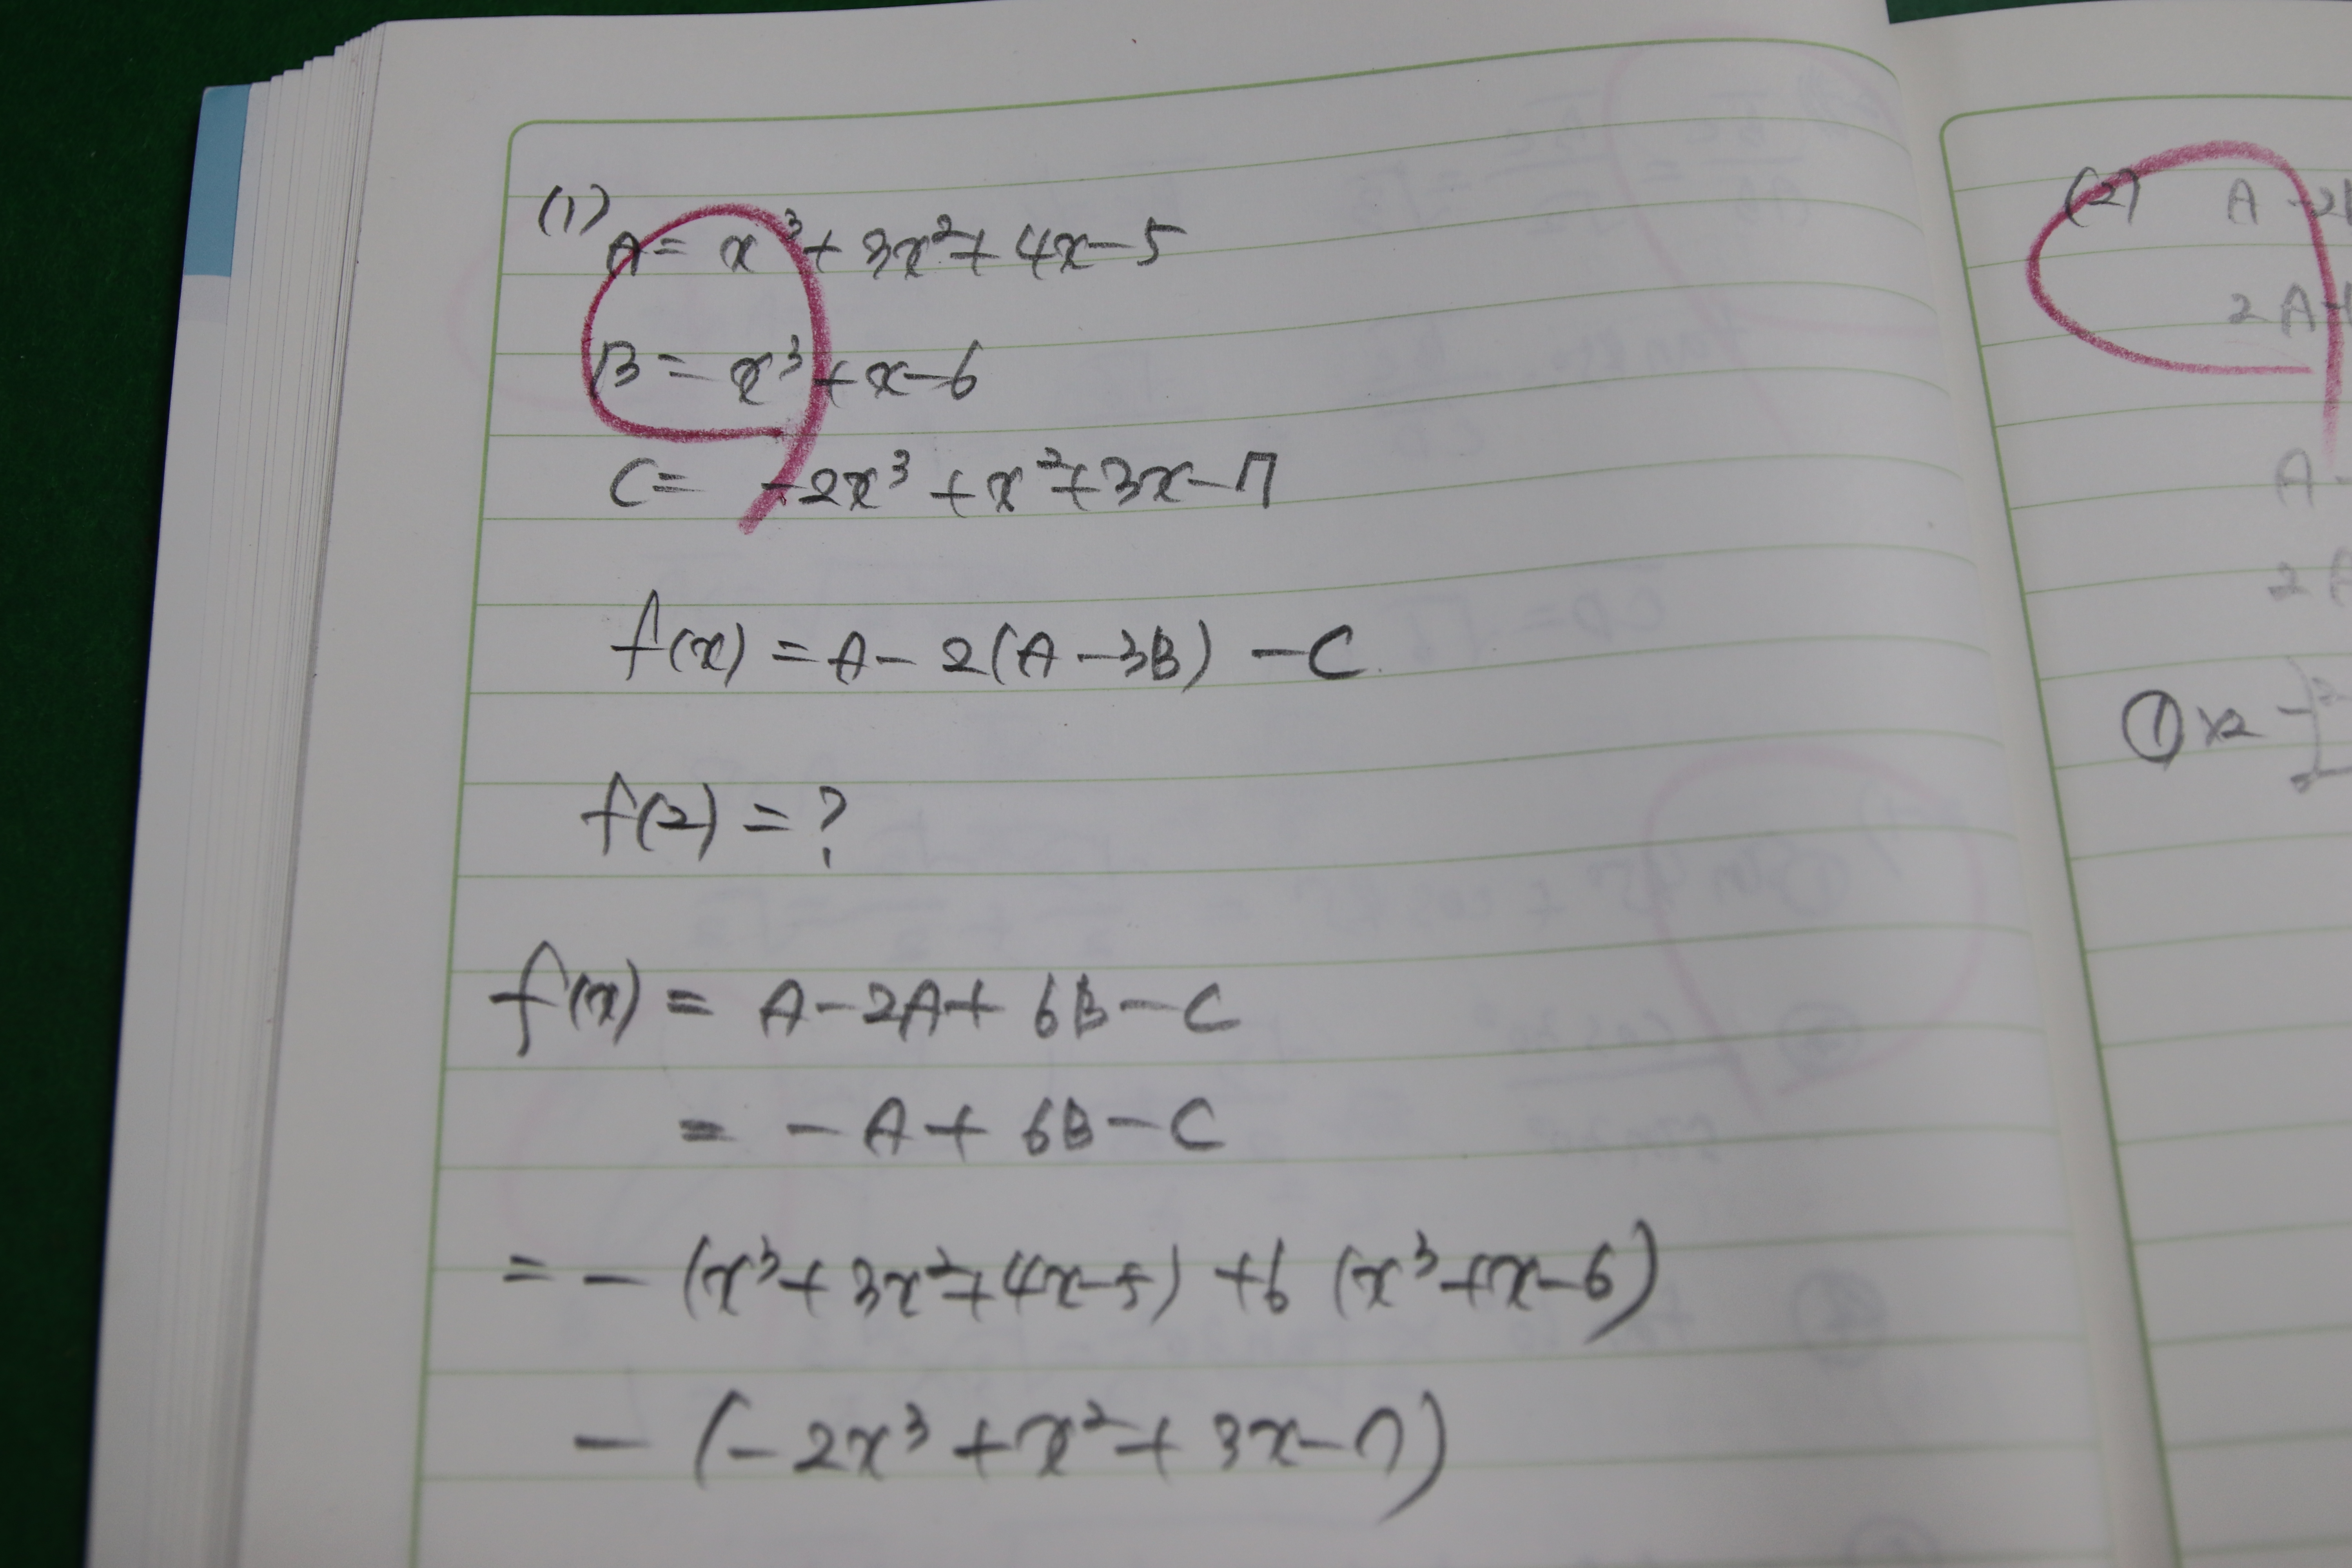 (1)
A = x³ + 3x² + 4x - 5
B = x³ + x - 6
C = -2x³ + x² + 3x - 7
f(x) = A - 2(A - 3B) - C
f(2) = ?
f(x) = A - 2A + 6B - C
= - A + 6B - C
= - (x³ + 3x² + 4x - 5) + 6 (x³ + x - 6)
- (-2x³ + x² + 3x - 7)
(2) A - 2
2A
A
2
① ×2 -